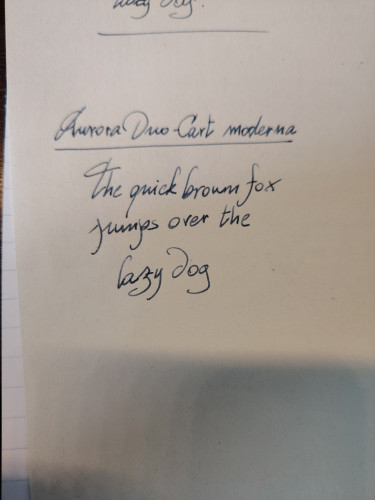 lazy dog.
Aurora Duo-Cart moderna
The quick brown fox
jumps over the
lazy Dog